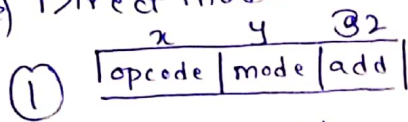 x y 32
① opcode | mode | add